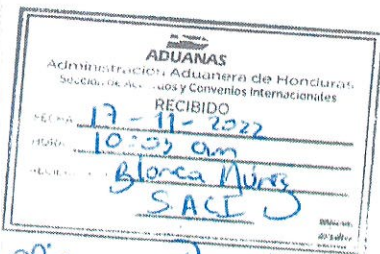 ADUANAS
Administración Aduanera de Honduras
Sección de Acuerdos y Convenios Internacionales
RECIBIDO
FECHA 17-11-2022
HORA: am
Blanca Núñez
SACI